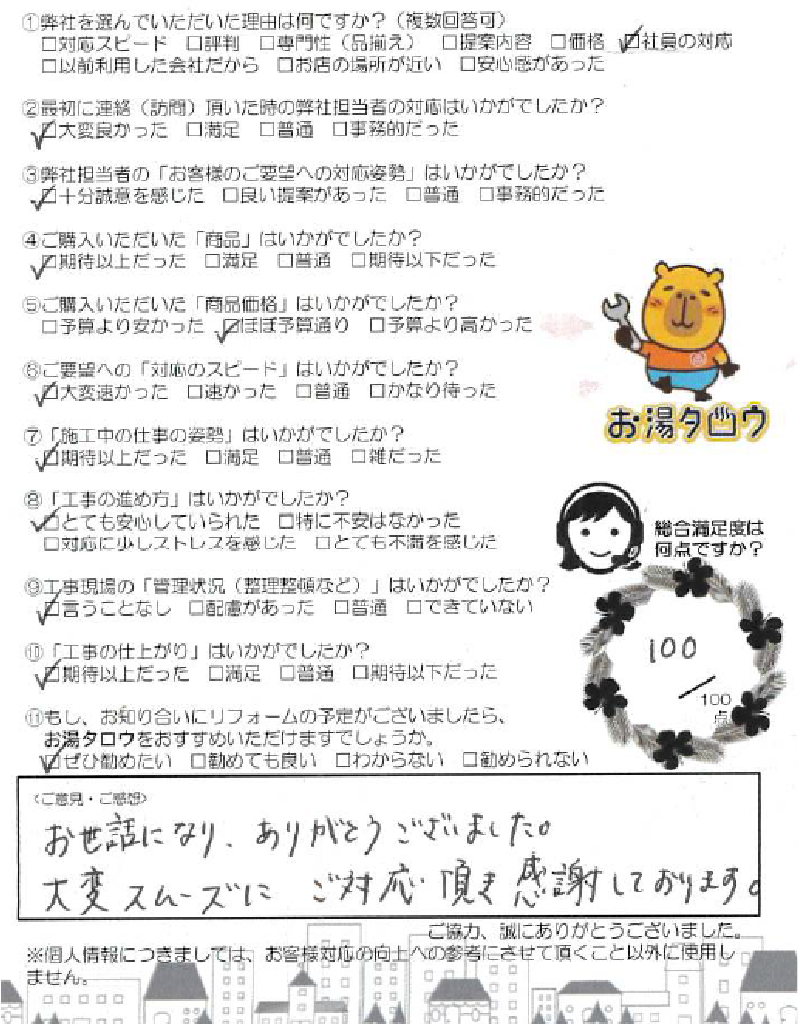 ①弊社を選んでいただいた理由は何ですか？（複数回答可）
□対応スピード □評判 □専門性（品揃え） □提案内容 □価格 ☑社員の対応
□以前利用した会社だから □お店の場所が近い □安心感があった
②最初に連絡（訪問）頂いた時の弊社担当者の対応はいかがでしたか？
☑大変良かった □満足 □普通 □事務的だった
③弊社担当者の「お客様のご要望への対応姿勢」はいかがでしたか？
☑十分誠意を感じた □良い提案があった □普通 □事務的だった
④ご購入いただいた「商品」はいかがでしたか？
☑期待以上だった □満足 □普通 □期待以下だった
⑤ご購入いただいた「商品価格」はいかがでしたか？
□予算より安かった ☑ほぼ予算通り □予算より高かった
⑥ご要望への「対応のスピード」はいかがでしたか？
☑大変速かった □速かった □普通 □かなり待った
お湯タロウ
⑦「施工中の仕事の姿勢」はいかがでしたか？
☑期待以上だった □満足 □普通 □雑だった
⑧「工事の進め方」はいかがでしたか？
☑とても安心していられた □特に不安はなかった
□対応に少しストレスを感じた □とても不満を感じた
総合満足度は
何点ですか？
⑨工事現場の「管理状況（整理整頓など）」はいかがでしたか？
☑言うことなし □配慮があった □普通 □できていない
⑩「工事の仕上がり」はいかがでしたか？
☑期待以上だった □満足 □普通 □期待以下だった
100
／100
点
⑪もし、お知り合いにリフォームの予定がございましたら、
お湯タロウをおすすめいただけますでしょうか。
☑ぜひ勧めたい □勧めても良い □わからない □勧められない
〈ご意見・ご感想〉
お世話になり、ありがとうございました。
大変スムーズに ご対応 頂き 感謝しております。
ご協力、誠にありがとうございました。
※個人情報につきましては、お客様対応の向上への参考にさせて頂くこと以外に使用し
ません。